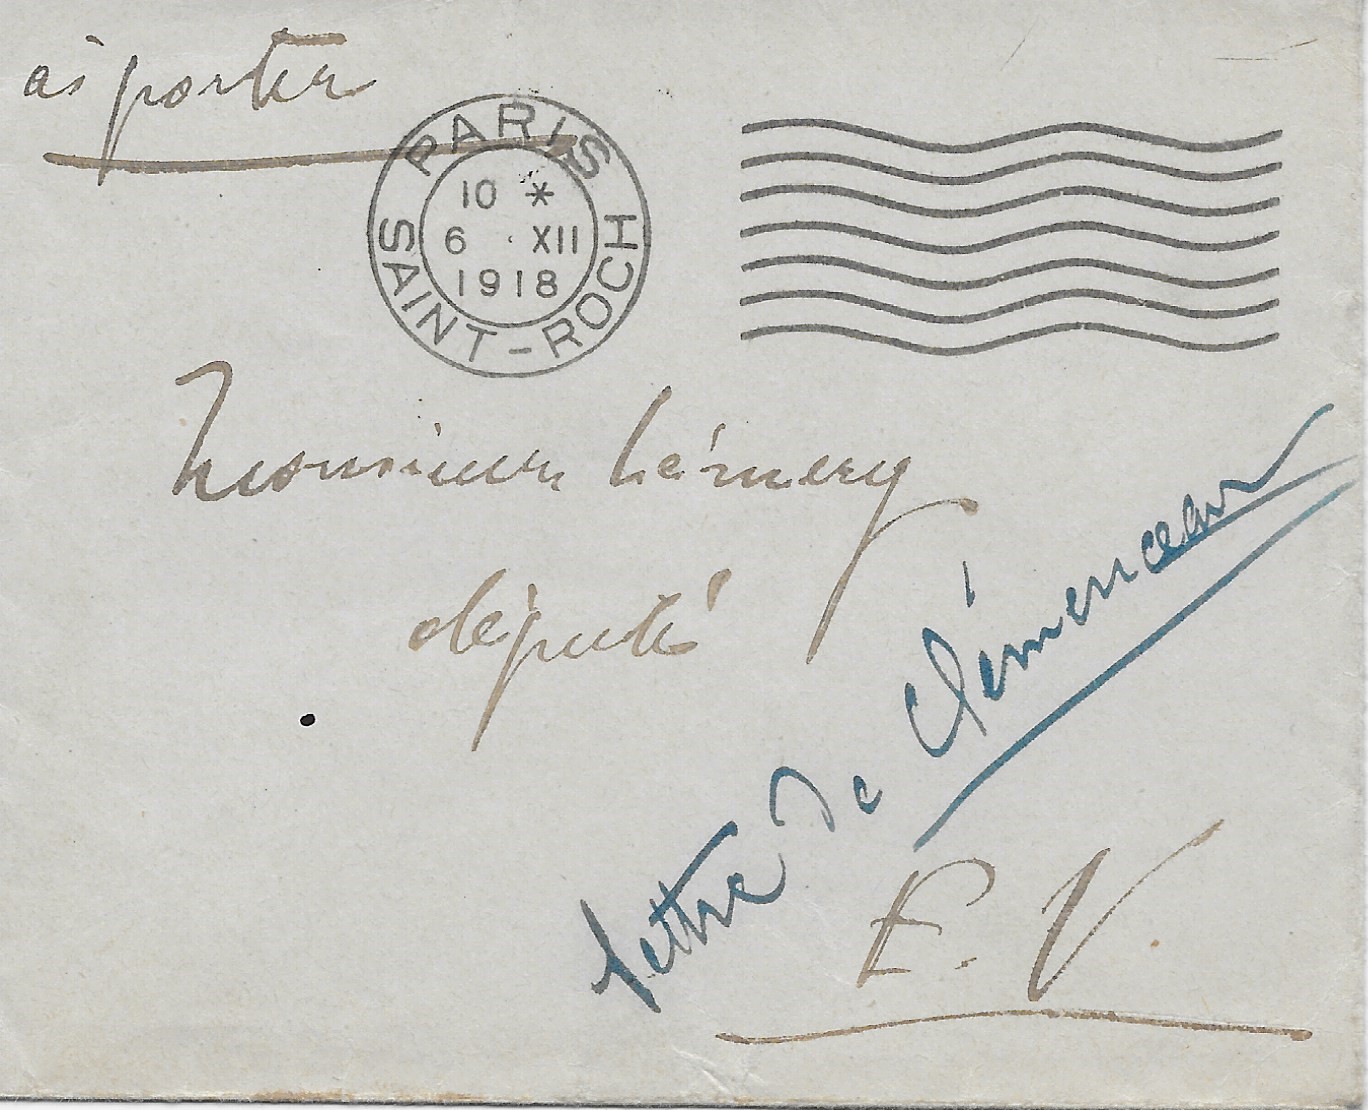 à porter
PARIS
10 *
6 XII
1918
SAINT-ROCH
Monsieur Lémery
député
lettre de Clémenceau
E. V.